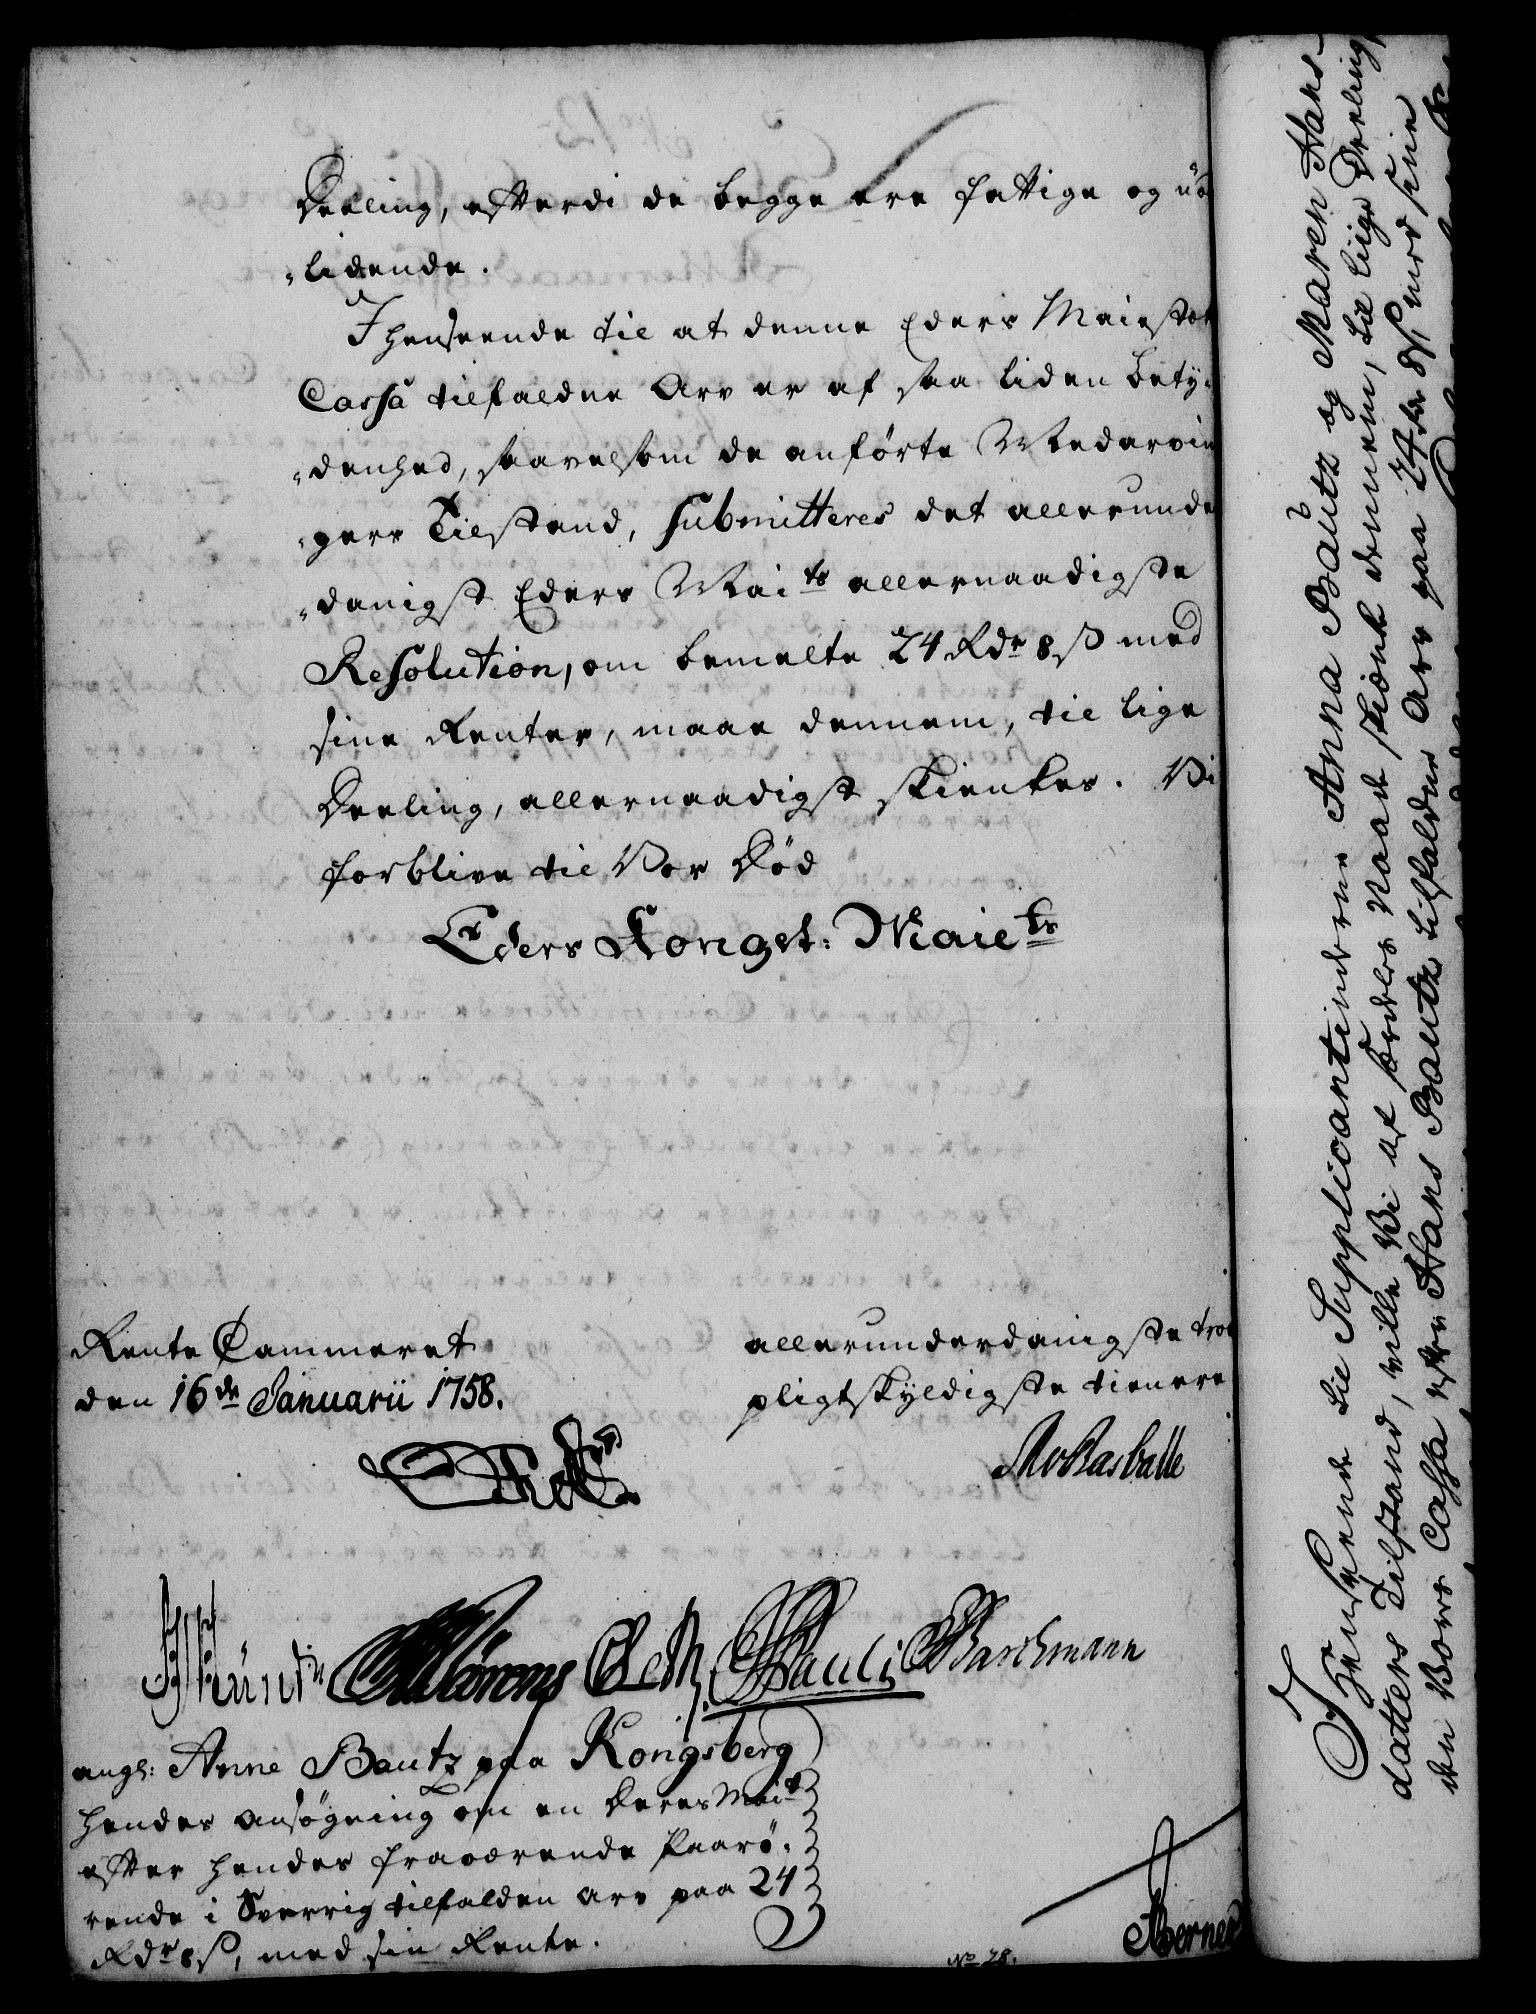 Deeling, efterdi de begge ere fattige og
lidende.
I henseende til at denne Eders Maiestæt
Cassa tilfaldne Arv er af saa liden bety-
-denhed, saavelsom de anførte Medarvin
-gers Tilstand, submitteres det allerunde
-danigst Eders Mai<sup>ts</sup> allernaadigste
Resolution, om bemelte 24 Rdr 8 ß med
sine Renter, maae dennem, til lige
Deeling, allernaadigst skienkes. Vi
forblive til Vor Død
Eders Kongel: Maie<sup>ts</sup>
Rente Cammeret
den 16de Januarii 1758.
allerunderdanigste troe
pligtskyldigste tienere
Pauli Barchmann
angl: Anne Bautz paa Kongsberg
hendes ansøgning om en Deres Mait
efter hendes fraværende Paarø-
rende i Sverrig tilfalden arv paa 24
Rdr 8 ß, med sin Rente.
No 28.
I Henseende til Supplicantinderne Anna Bautz og Maren Hans-
datters Tilstand, ville Vi af særdeles Naade skienk dennem, til liige Deeling,
den Vores Cassa efter Hans Bautz tilfaldne Arv paa 24 Rdr 8 ß, med sine